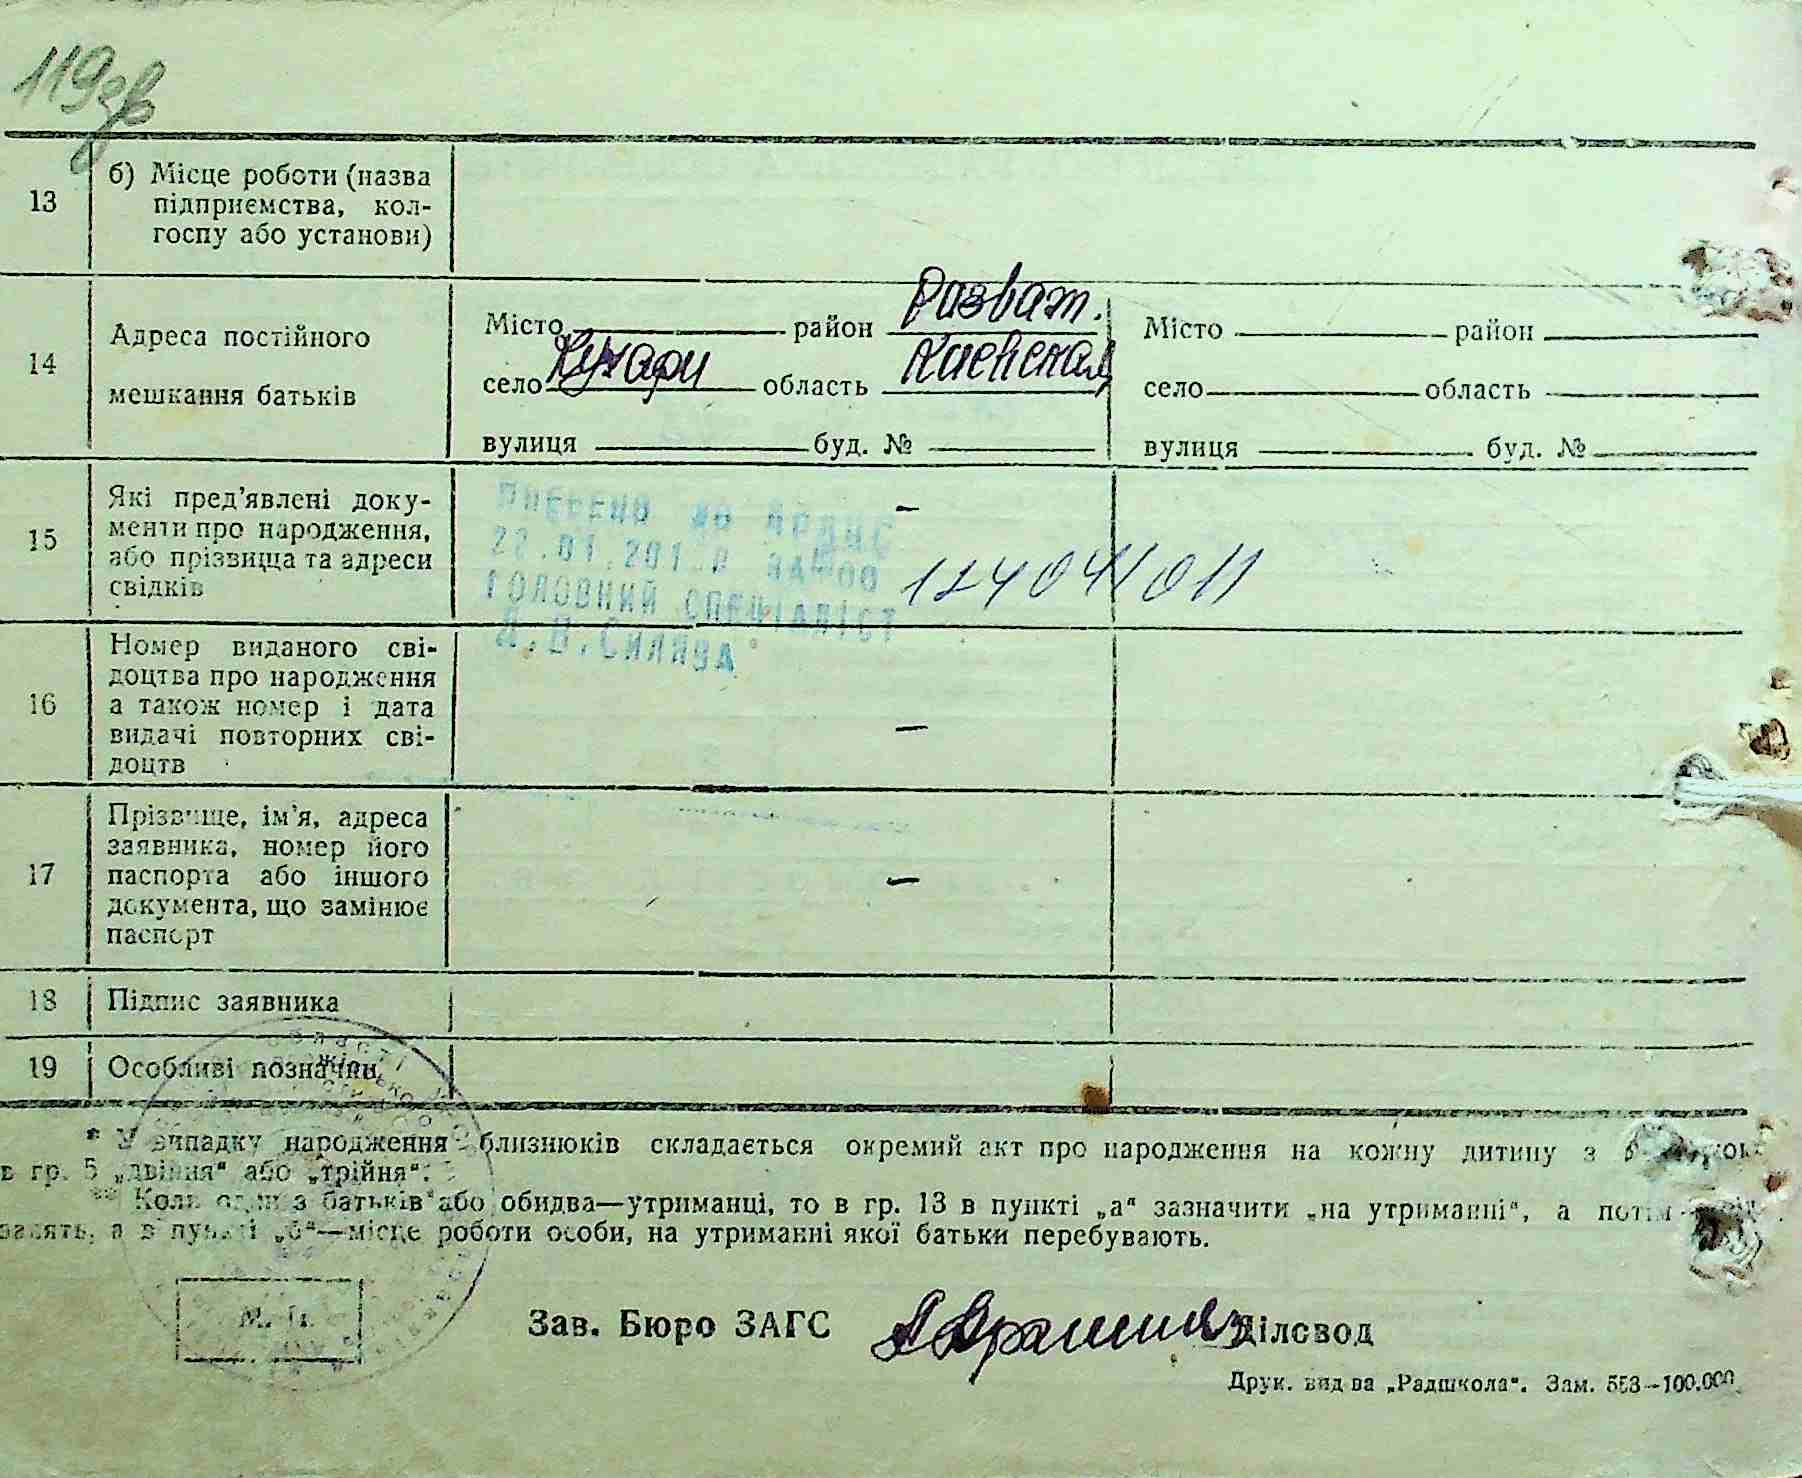 119зв
13
б) Місце роботи (назва
підприємства, кол-
госпу або установи)
14
Адреса постійного
мешкання батьків
Місто район Розваж.
село Кухари область Киевская
вулиця буд. №
Місто район
село область
вулиця буд. №
15
Які пред’явлені доку-
менти про народження,
або прізвища та адреси
свідків
ВНЕСЕНО ДО ДРАЦС
ГОЛОВНИЙ СПЕЦІАЛІСТ
16
Номер виданого сві-
доцтва про народження
а також номер і дата
видачі повторних сві-
доцтв
–
17
Прізвище, ім’я, адреса
заявника, номер його
паспорта або іншого
документа, що замінює
паспорт
–
18
Підпис заявника
19
Особливі позначки
* У випадку народження близнюків складається окремий акт про народження на кожну дитину з
в гр. 5 „двійня“ або „трійня“.
** Коли один з батьків або обидва—утриманці, то в гр. 13 в пункті „а“ зазначити „на утриманні“, а потім
занять, а в пункті „б“—місце роботи особи, на утриманні якої батьки перебувають.
М. П.
Зав. Бюро ЗАГС
Діловод
Друк. вид ва „Радшкола“. Зам. 553—100.000